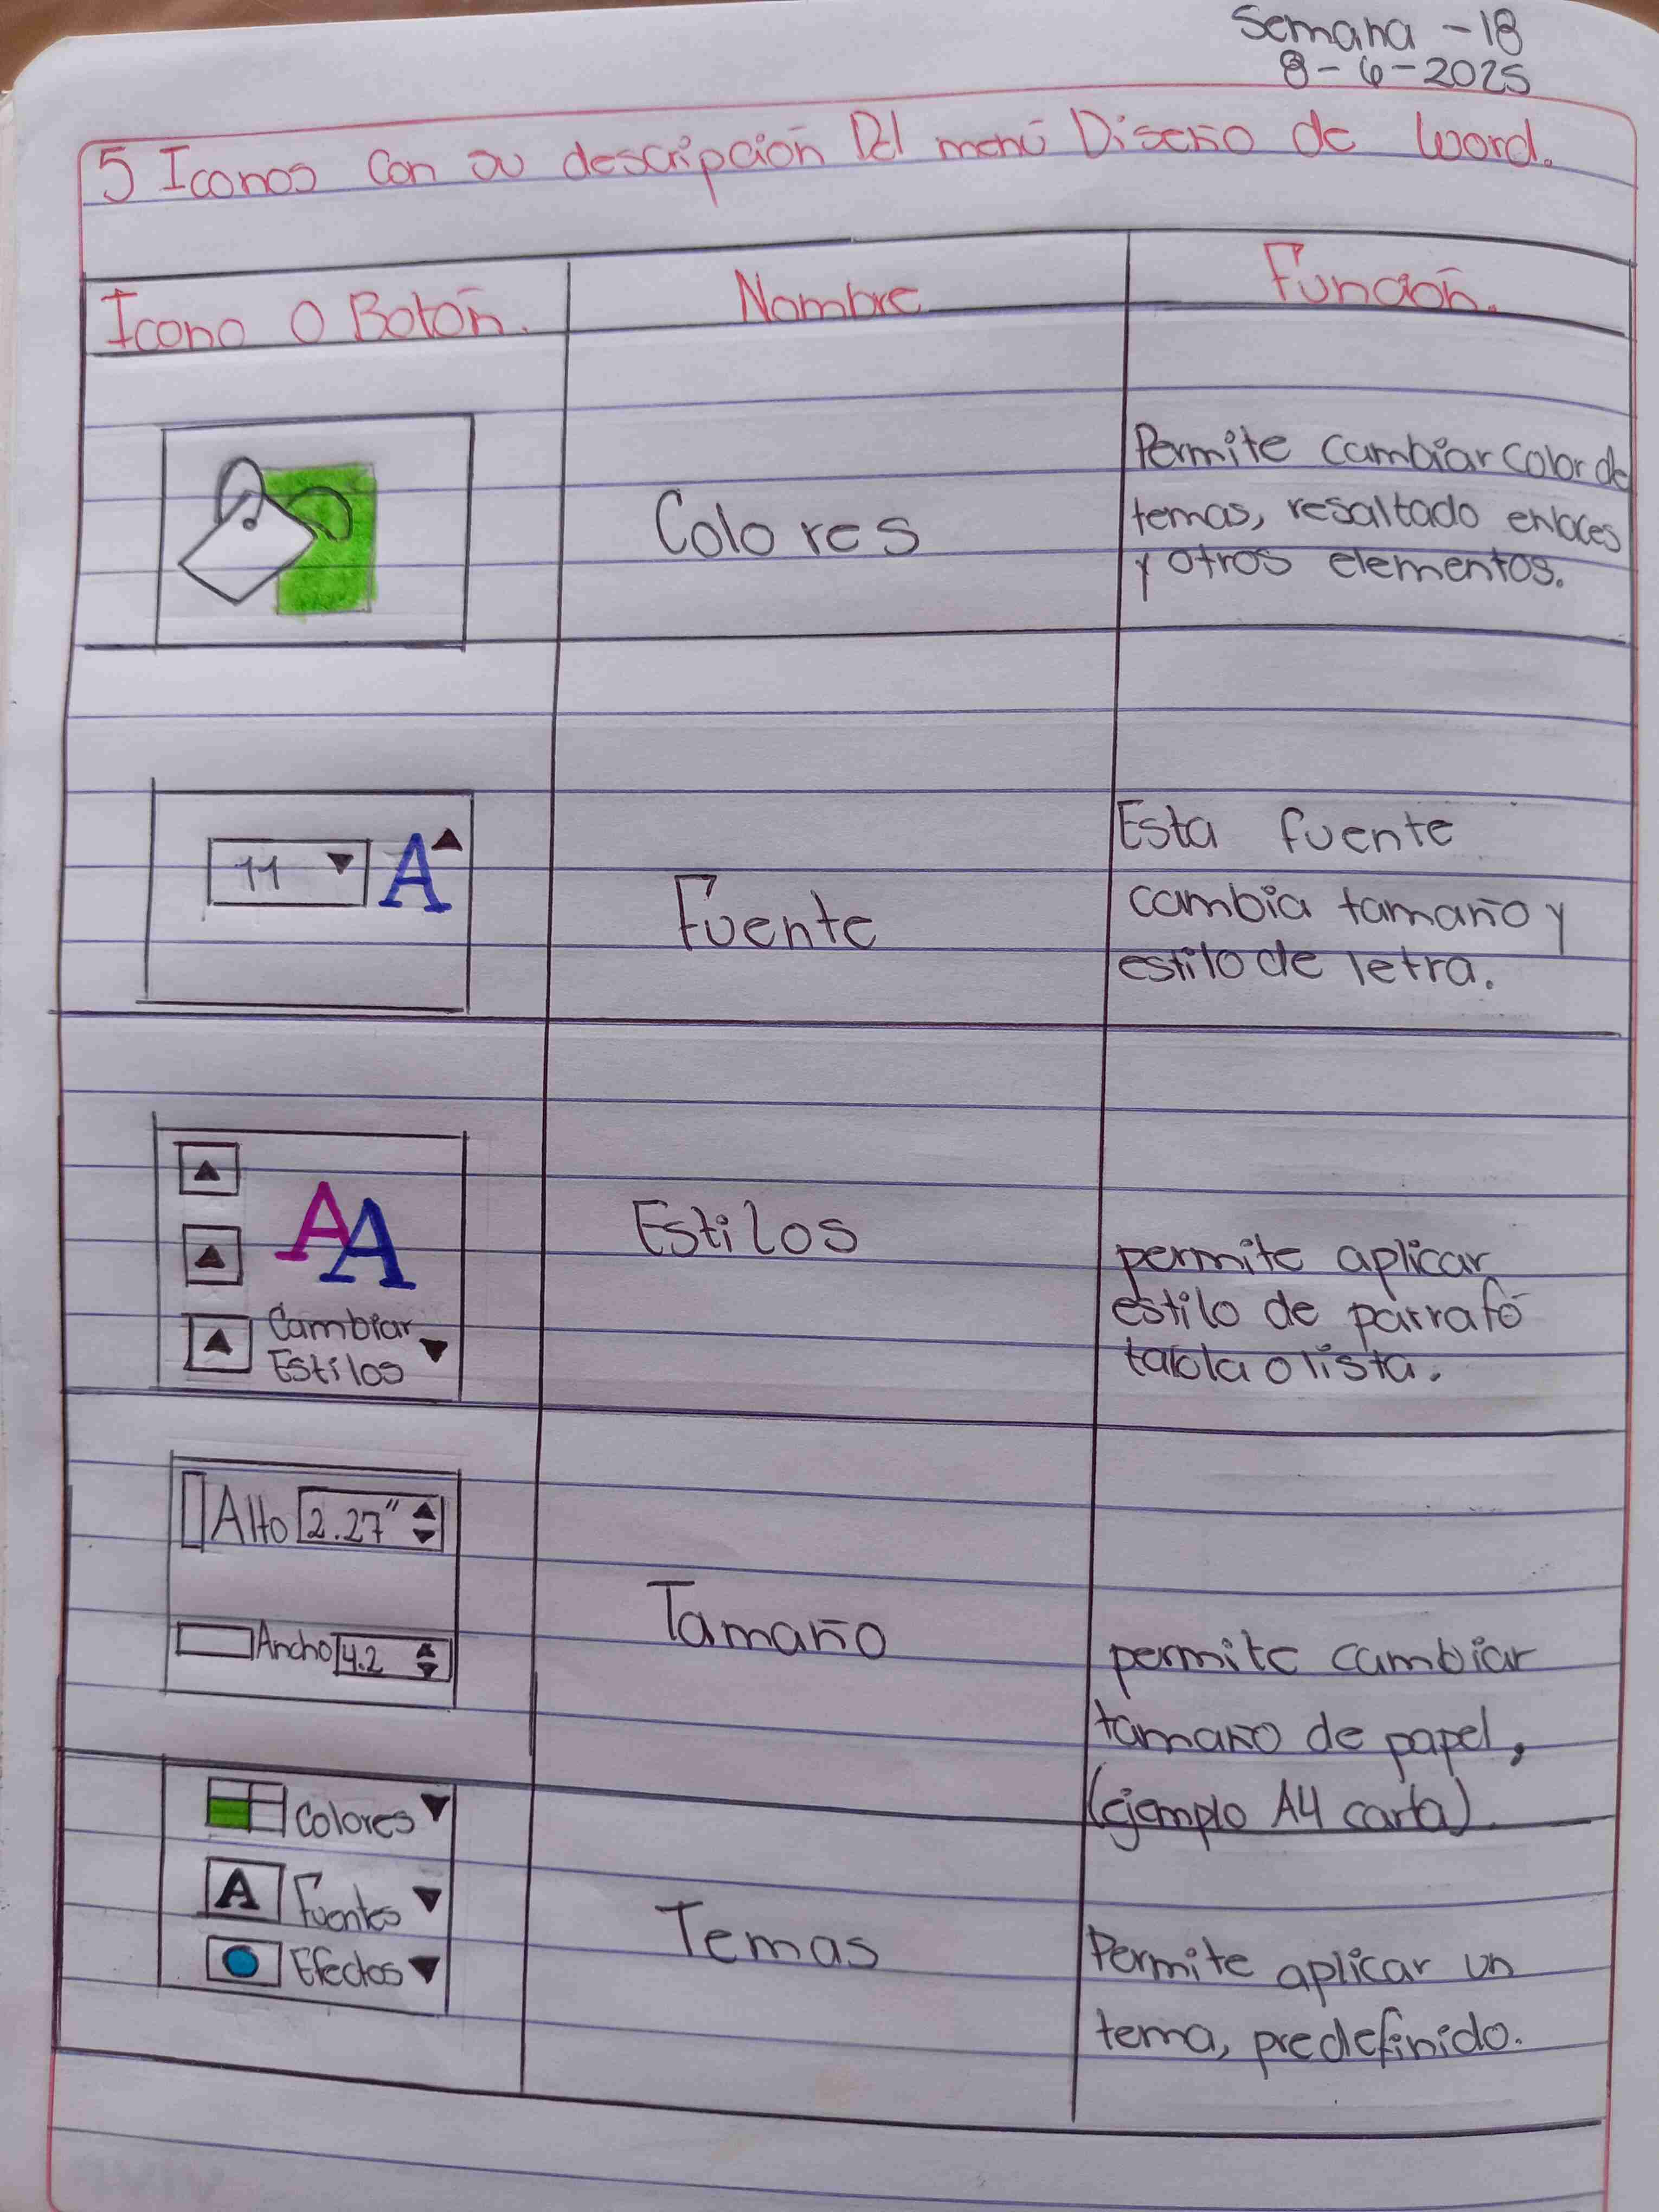 Semana -18
8-6-2025
5 Iconos con su descripción Del menú Diseño de Word.
Icono o Botón. Nombre Función.
Colores
Permite cambiar color de
temas, resaltado enlaces
y otros elementos.
11 A
Fuente
Esta fuente
cambia tamaño y
estilo de letra.
AA
Cambiar
Estilos
Estilos
permite aplicar
estilo de parrafo
tabla o lista.
Alto 2.27"
Ancho 4.2
Tamaño
permite cambiar
tamaño de papel,
(ejemplo A4 carta)
Colores
A Fuentes
Efectos
Temas
Permite aplicar un
tema, predefinido.